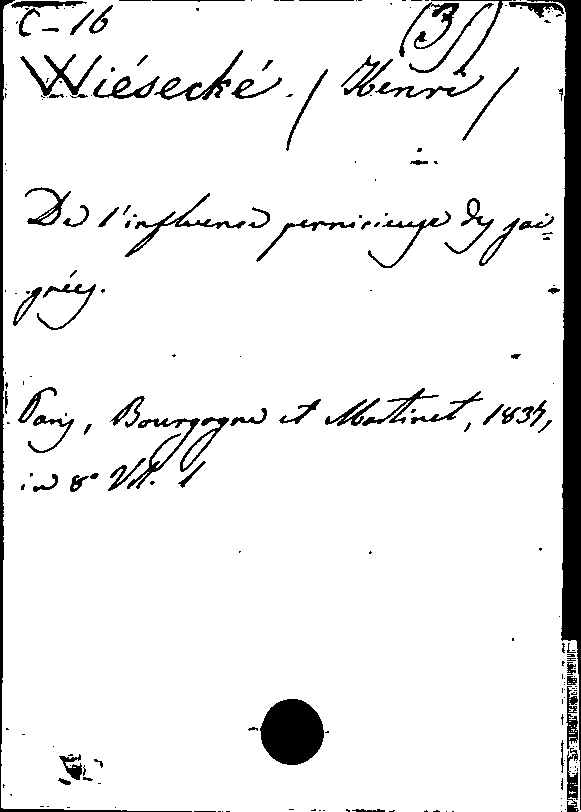 C-16 (3)
Wiésecké. (Henri)
De l'influence pernicieuse des sai-
gnées.
Paris, Bourgogne et Martinet, 1837,
in 8°